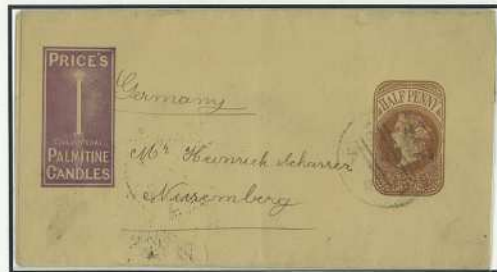 PRICE'S
PALMITINE
CANDLES
Germany
HALF PENNY
Mr Heinrich Scharrer
Nuremberg